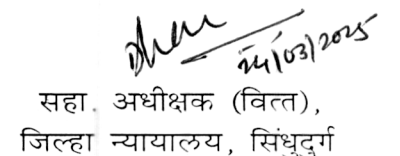 24/03/2025
सहा. अधीक्षक (वित्त),
जिल्हा न्यायालय, सिंधुदुर्ग